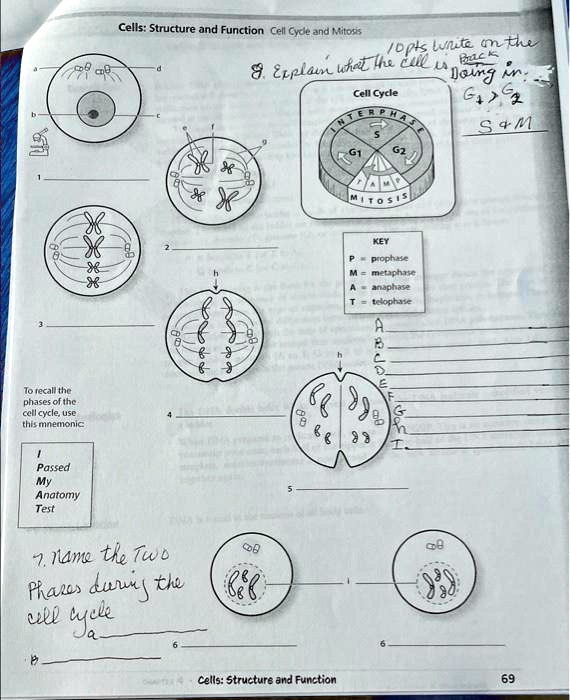 Cells: Structure and Function Cell Cycle and Mitosis
10pts Write on the
Back
8. Explain what the cell is Doing in:
G1, G2
S & M
Cell Cycle
INTERPHASE
S
G1
G2
T A M P
MITOSIS
a
d
b
c
1
e
f
g
2
KEY
P = prophase
M = metaphase
A = anaphase
T = telophase
3
h
4
A
B.
C
D
E
F.
G
h
I.
h
5
To recall the
phases of the
cell cycle, use
this mnemonic:
I
Passed
My
Anatomy
Test
7. Name the Two
Phases during the
cell cycle
a
B
i
6
6
CHAPTER 4 Cells: Structure and Function 69